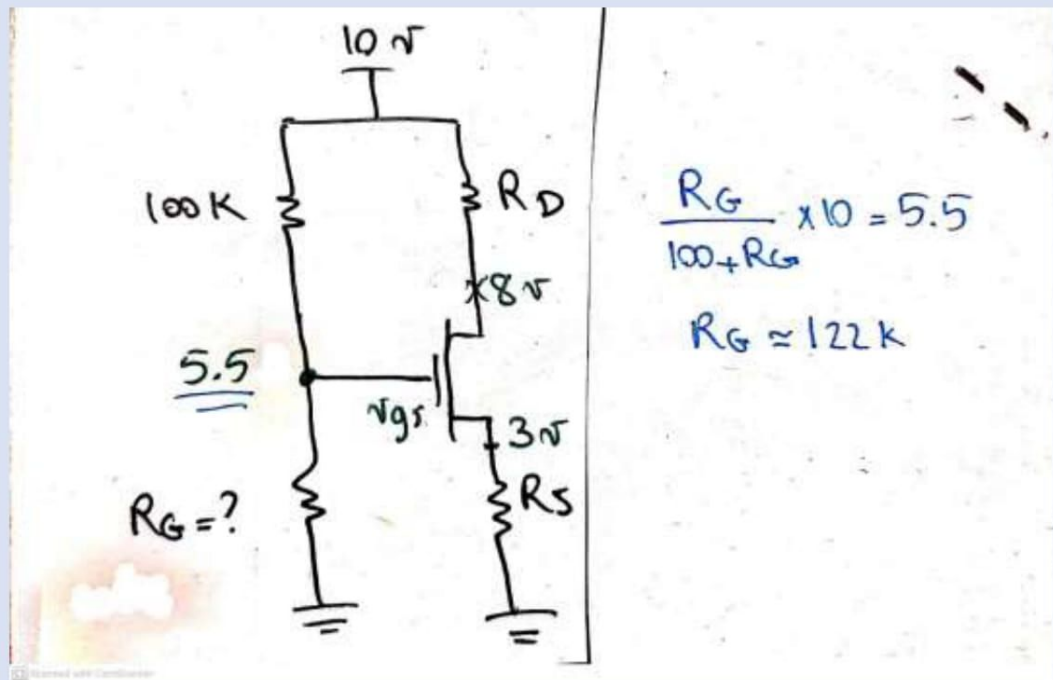 10 v
100K
RD
8v
5.5
vgs
3v
RG=?
RS
RG
100+RG
x10 = 5.5
RG ≃ 122 K
Scanned with CamScanner